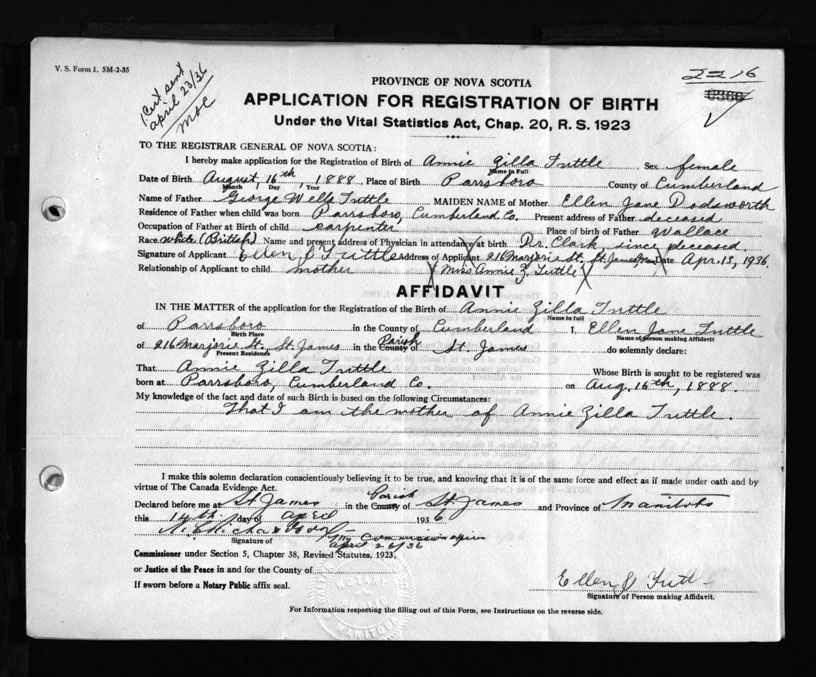 V. S. Form 1. 5M-2-35
1 Cert sent
april 23/36
moc
2216
PROVINCE OF NOVA SCOTIA
APPLICATION FOR REGISTRATION OF BIRTH
Under the Vital Statistics Act, Chap. 20, R. S. 1923
TO THE REGISTRAR GENERAL OF NOVA SCOTIA:
I hereby make application for the Registration of Birth of Annie Zilla Tuttle Sex female
Name in Full
Date of Birth August, 16th, 1888, Place of Birth Parrsboro County of Cumberland
Month Day Year
Name of Father George Wells Tuttle MAIDEN NAME of Mother Ellen Jane Dodsworth
Residence of Father when child was born Parrsboro, Cumberland Co. Present address of Father deceased
Occupation of Father at Birth of child carpenter Place of birth of Father Wallace
Race White (British) Name and present address of Physician in attendance at birth Dr. Clark, since deceased.
Signature of Applicant Ellen J Tuttle Address of Applicant 216 Marjorie St. St. James, Man Date Apr. 13, 1936.
Relationship of Applicant to child mother Miss Annie Z. Tuttle
AFFIDAVIT
IN THE MATTER of the application for the Registration of the Birth of Annie Zilla Tuttle
Name in full
of Parrsboro in the County of Cumberland I, Ellen Jane Tuttle
Birth Place Name of person making Affidavit
of 216 Marjorie St., St. James in the County of Parish St. James do solemnly declare:
Present Residence
That Annie Zilla Tuttle Whose Birth is sought to be registered was
born at Parrsboro, Cumberland Co. on Aug. 16th, 1888.
My knowledge of the fact and date of such Birth is based on the following Circumstances:
That I am the mother of Annie Zilla Tuttle.
I make this solemn declaration conscientiously believing it to be true, and knowing that it is of the same force and effect as if made under oath and by
virtue of The Canada Evidence Act.
Declared before me at St James in the County of Parish St. James and Province of Manitoba
this 14th. day of april 1936
My Commission expires
Signature of april 26/36
Commissioner under Section 5, Chapter 38, Revised Statutes, 1923,
or Justice of the Peace in and for the County of
If sworn before a Notary Public affix seal.
Ellen J Tuttle
Signature of Person making Affidavit.
For Information respecting the filling out of this Form, see Instructions on the reverse side.